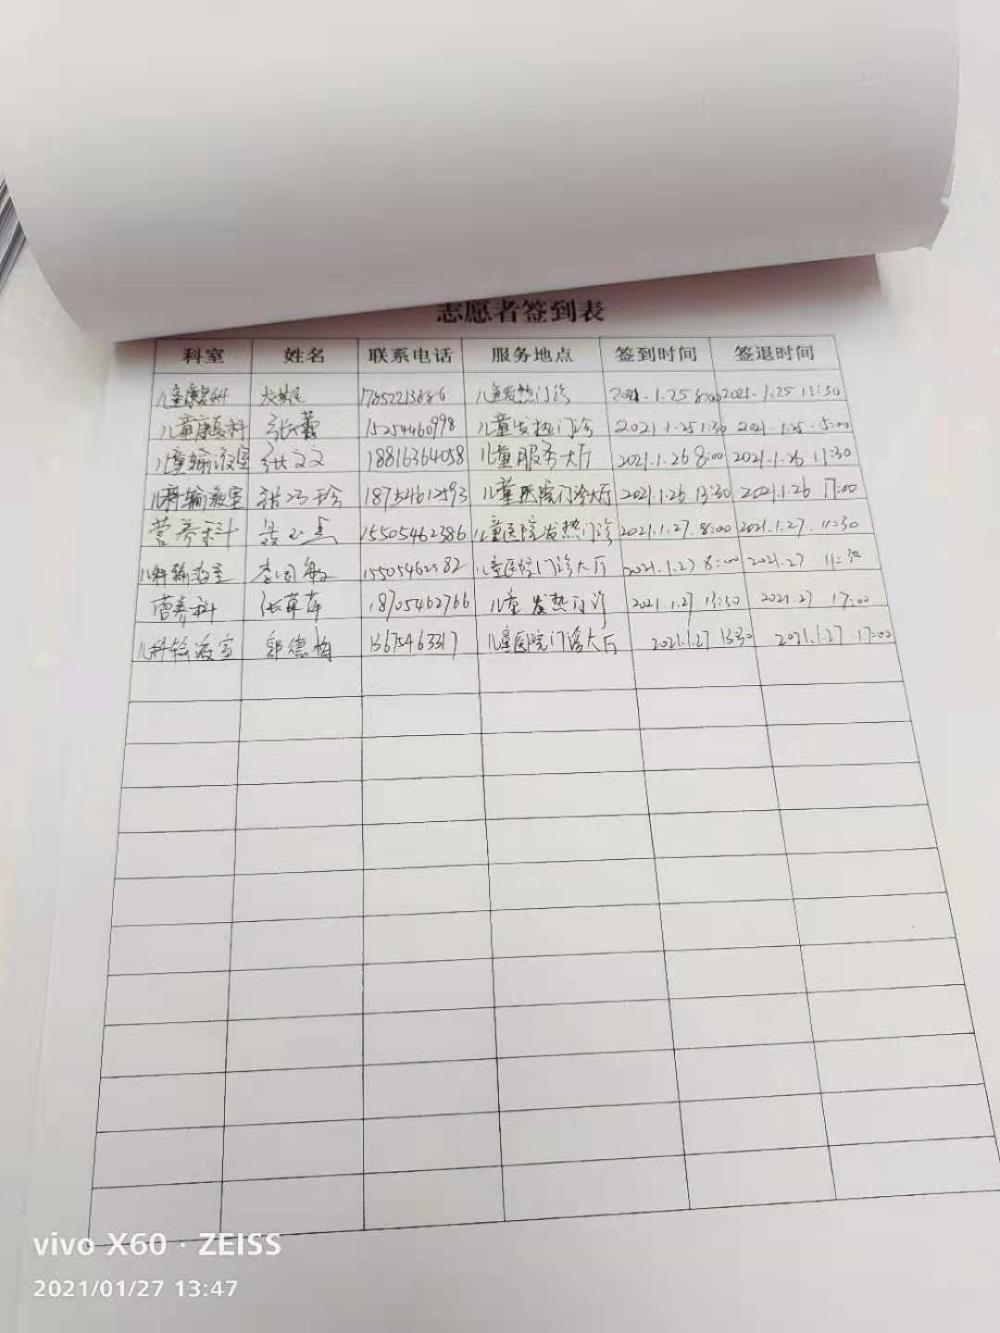 志愿者签到表
科室 姓名 联系电话 服务地点 签到时间 签退时间
儿童康复科 17852213886 儿童发热门诊 2021.1.25 8:00 2021.1.25 11:30
儿童康复科 张蕾 15254460998 儿童发热门诊 2021.1.25 1:30 2021.1.25 5:00
儿童输液室 张文文 18816364058 儿童服务大厅 2021.1.26 8:00 2021.1.26 11:30
儿科输液室 18754612593 儿童医院门诊大厅 2021.1.26 13:30 2021.1.26 17:00
营养科 15505462386 儿童医院发热门诊 2021.1.27. 8:00 2021.1.27. 11:30
儿科输液室 李国敏 儿童医院门诊大厅 2021.1.27 8:00 2021.27 11:30
营养科 张草萍 18705462766 儿童发热门诊 2021.1.27 13:30 2021.27 17:00
儿科输液室 郭德梅 儿童医院门诊大厅 2021.1.27 13:30 2021.1.27 17:00
vivo X60 · ZEISS
2021/01/27 13:47